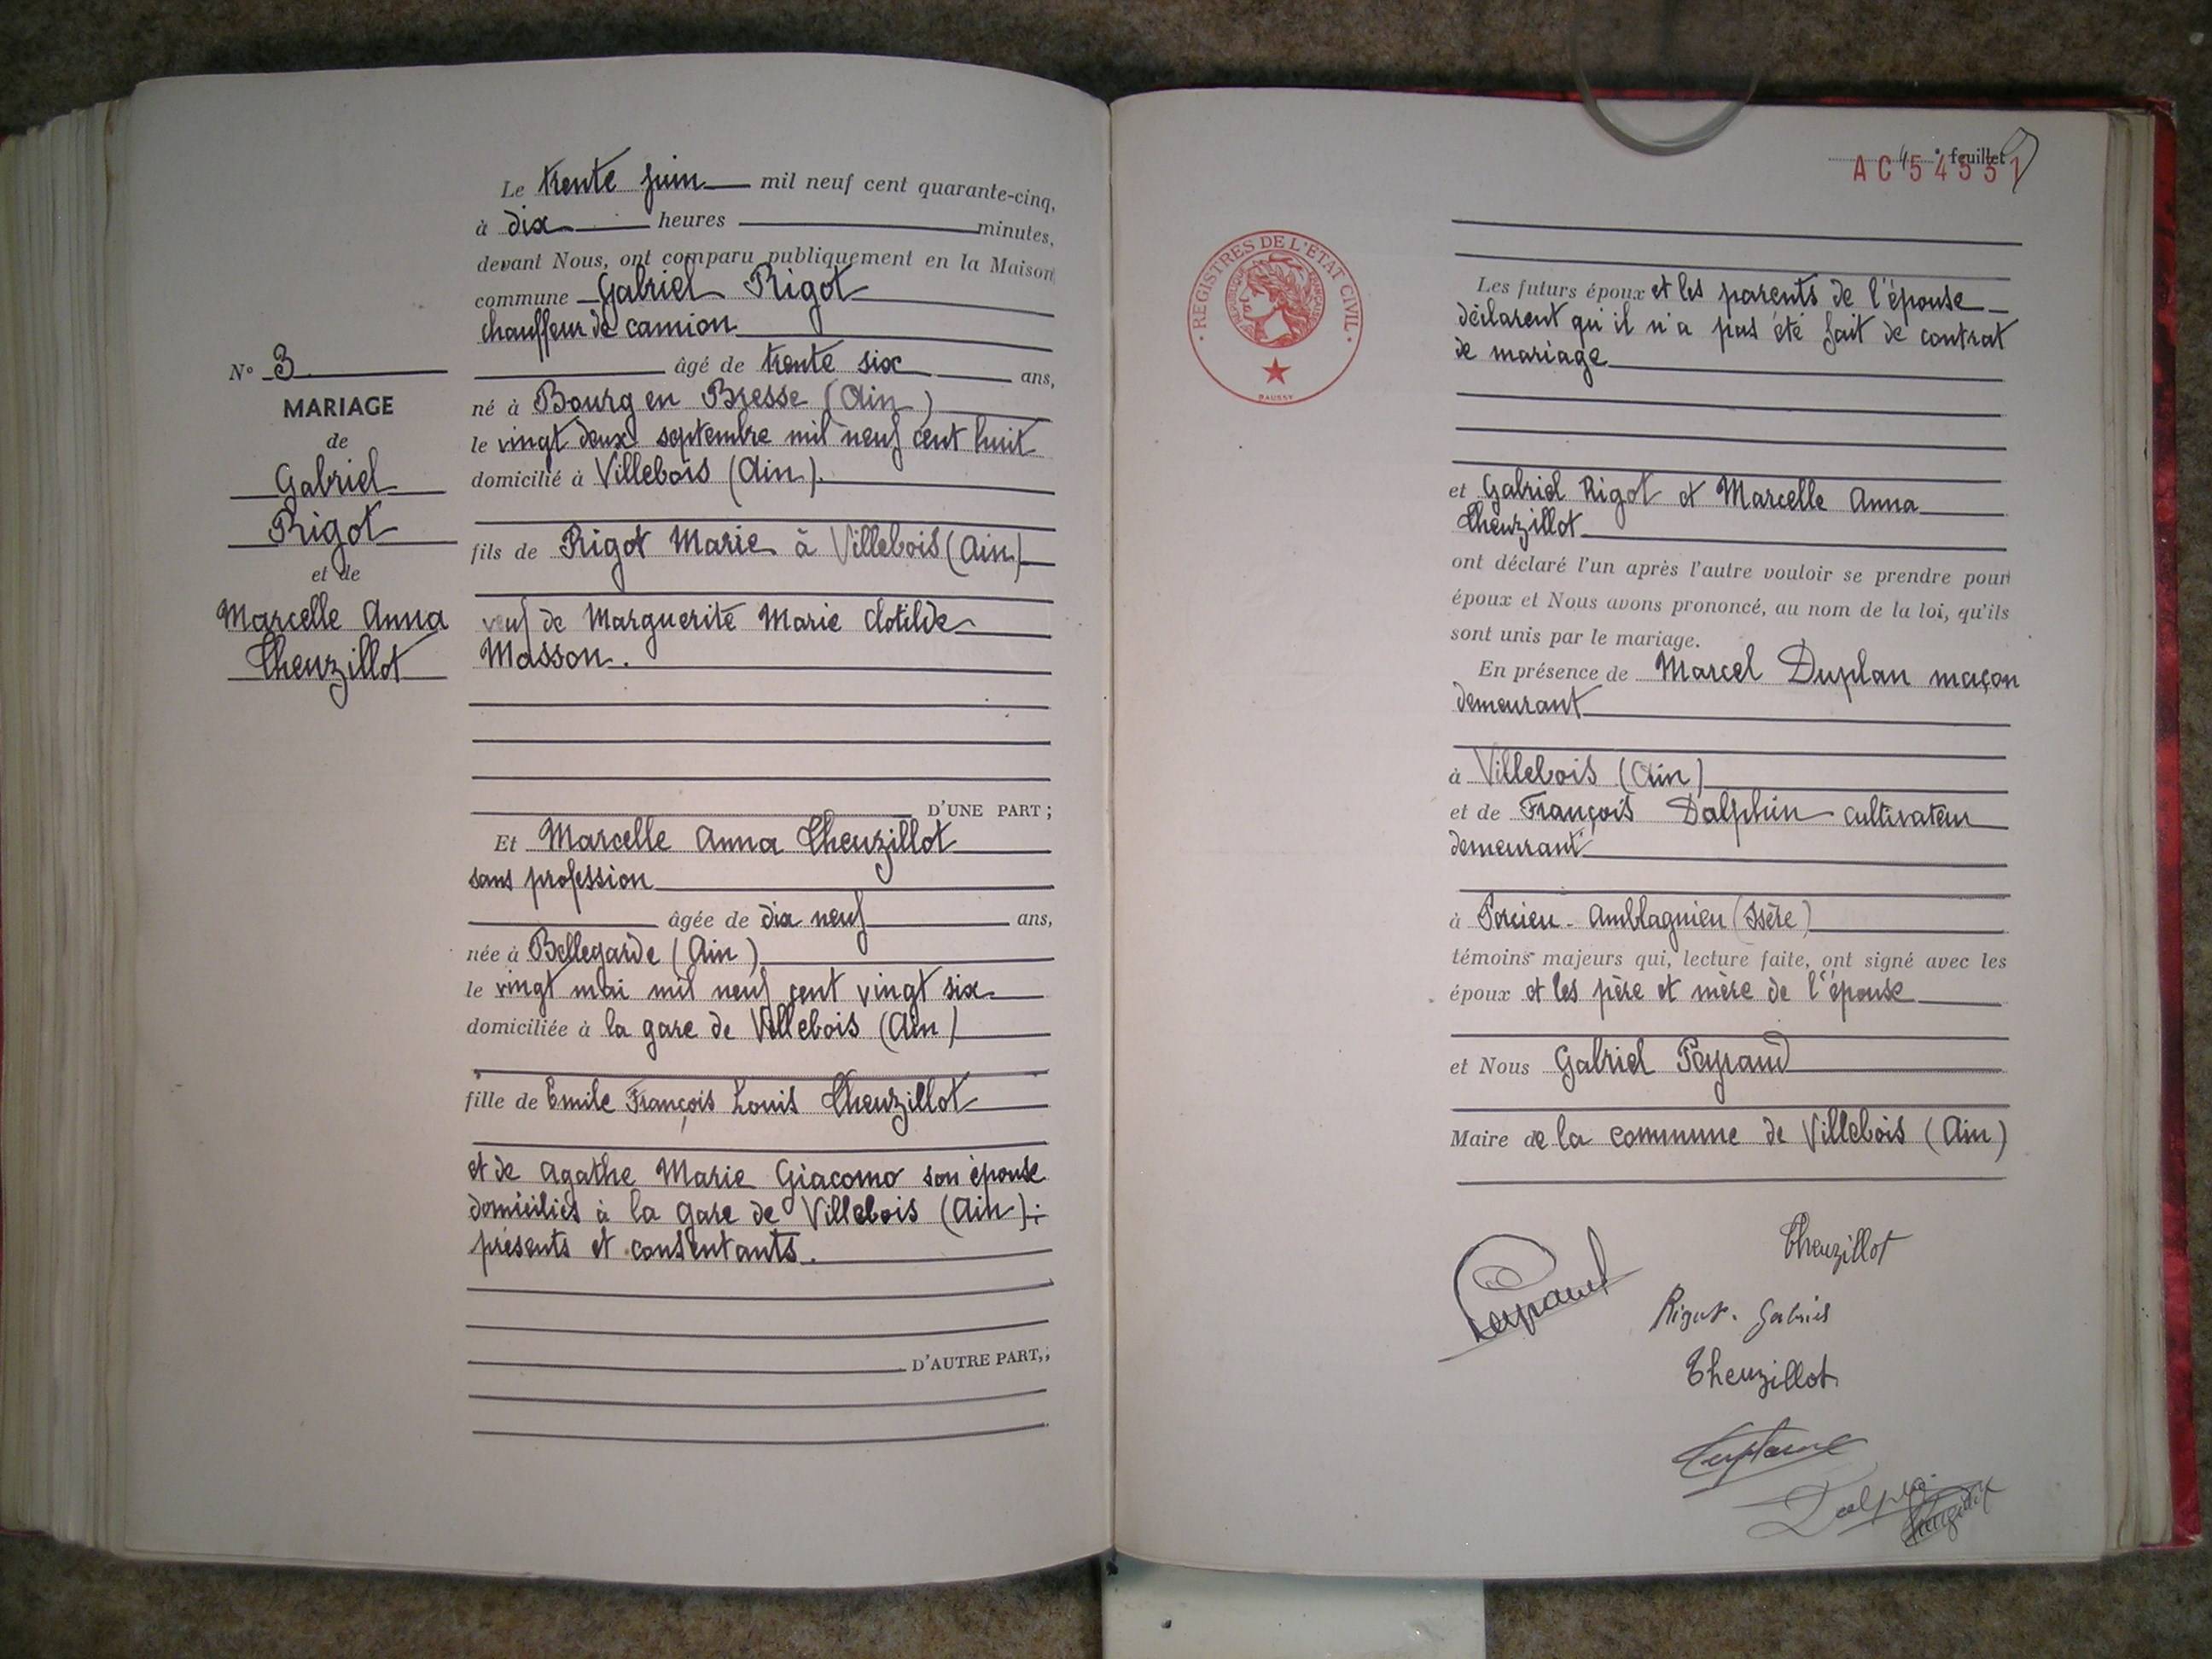 Le trente juin mil neuf cent quarante-cinq,
à dix heures minutes,
devant Nous, ont comparu publiquement en la Maison
commune Gabriel Rigot
chauffeur de camion
âgé de trente six ans,
né à Bourg en Bresse (Ain)
le vingt deux septembre mil neuf cent huit
domicilié à Villebois (Ain).
fils de Rigot Marie à Villebois (Ain)
veuf de Marguerite Marie Clotilde
Masson.
D'UNE PART ;
Et Marcelle Anna Theuzillot
sans profession
âgée de dix neuf ans,
née à Bellegarde (Ain)
le vingt mai mil neuf cent vingt six
domiciliée à la gare de Villebois (Ain)
fille de Emile François Louis Theuzillot
et de Agathe Marie Giacomo son épouse
domiciliés à la gare de Villebois (Ain);
présents et consentants.
D'AUTRE PART,;
N° 3
MARIAGE
de
Gabriel
Rigot
et de
Marcelle Anna
Theuzillot
4e feuillet
AC 54531
REGISTRES DE L'ÉTAT CIVIL
RÉPUBLIQUE FRANÇAISE
DAUSSY
Les futurs époux et les parents de l'épouse
déclarent qu'il n'a pas été fait de contrat
de mariage
et Gabriel Rigot et Marcelle Anna
Theuzillot
ont déclaré l'un après l'autre vouloir se prendre pour
époux et Nous avons prononcé, au nom de la loi, qu'ils
sont unis par le mariage.
En présence de Marcel Duplan maçon
demeurant
à Villebois (Ain)
et de François Dalphin cultivateur
demeurant
à Porcieu-Amblagnieu (Isère)
témoins majeurs qui, lecture faite, ont signé avec les
époux et les père et mère de l'épouse
et Nous Gabriel Peyraud
Maire de la commune de Villebois (Ain)
Theuzillot
Peyraud
Rigot. Gabriel
Theuzillot
Dalphin